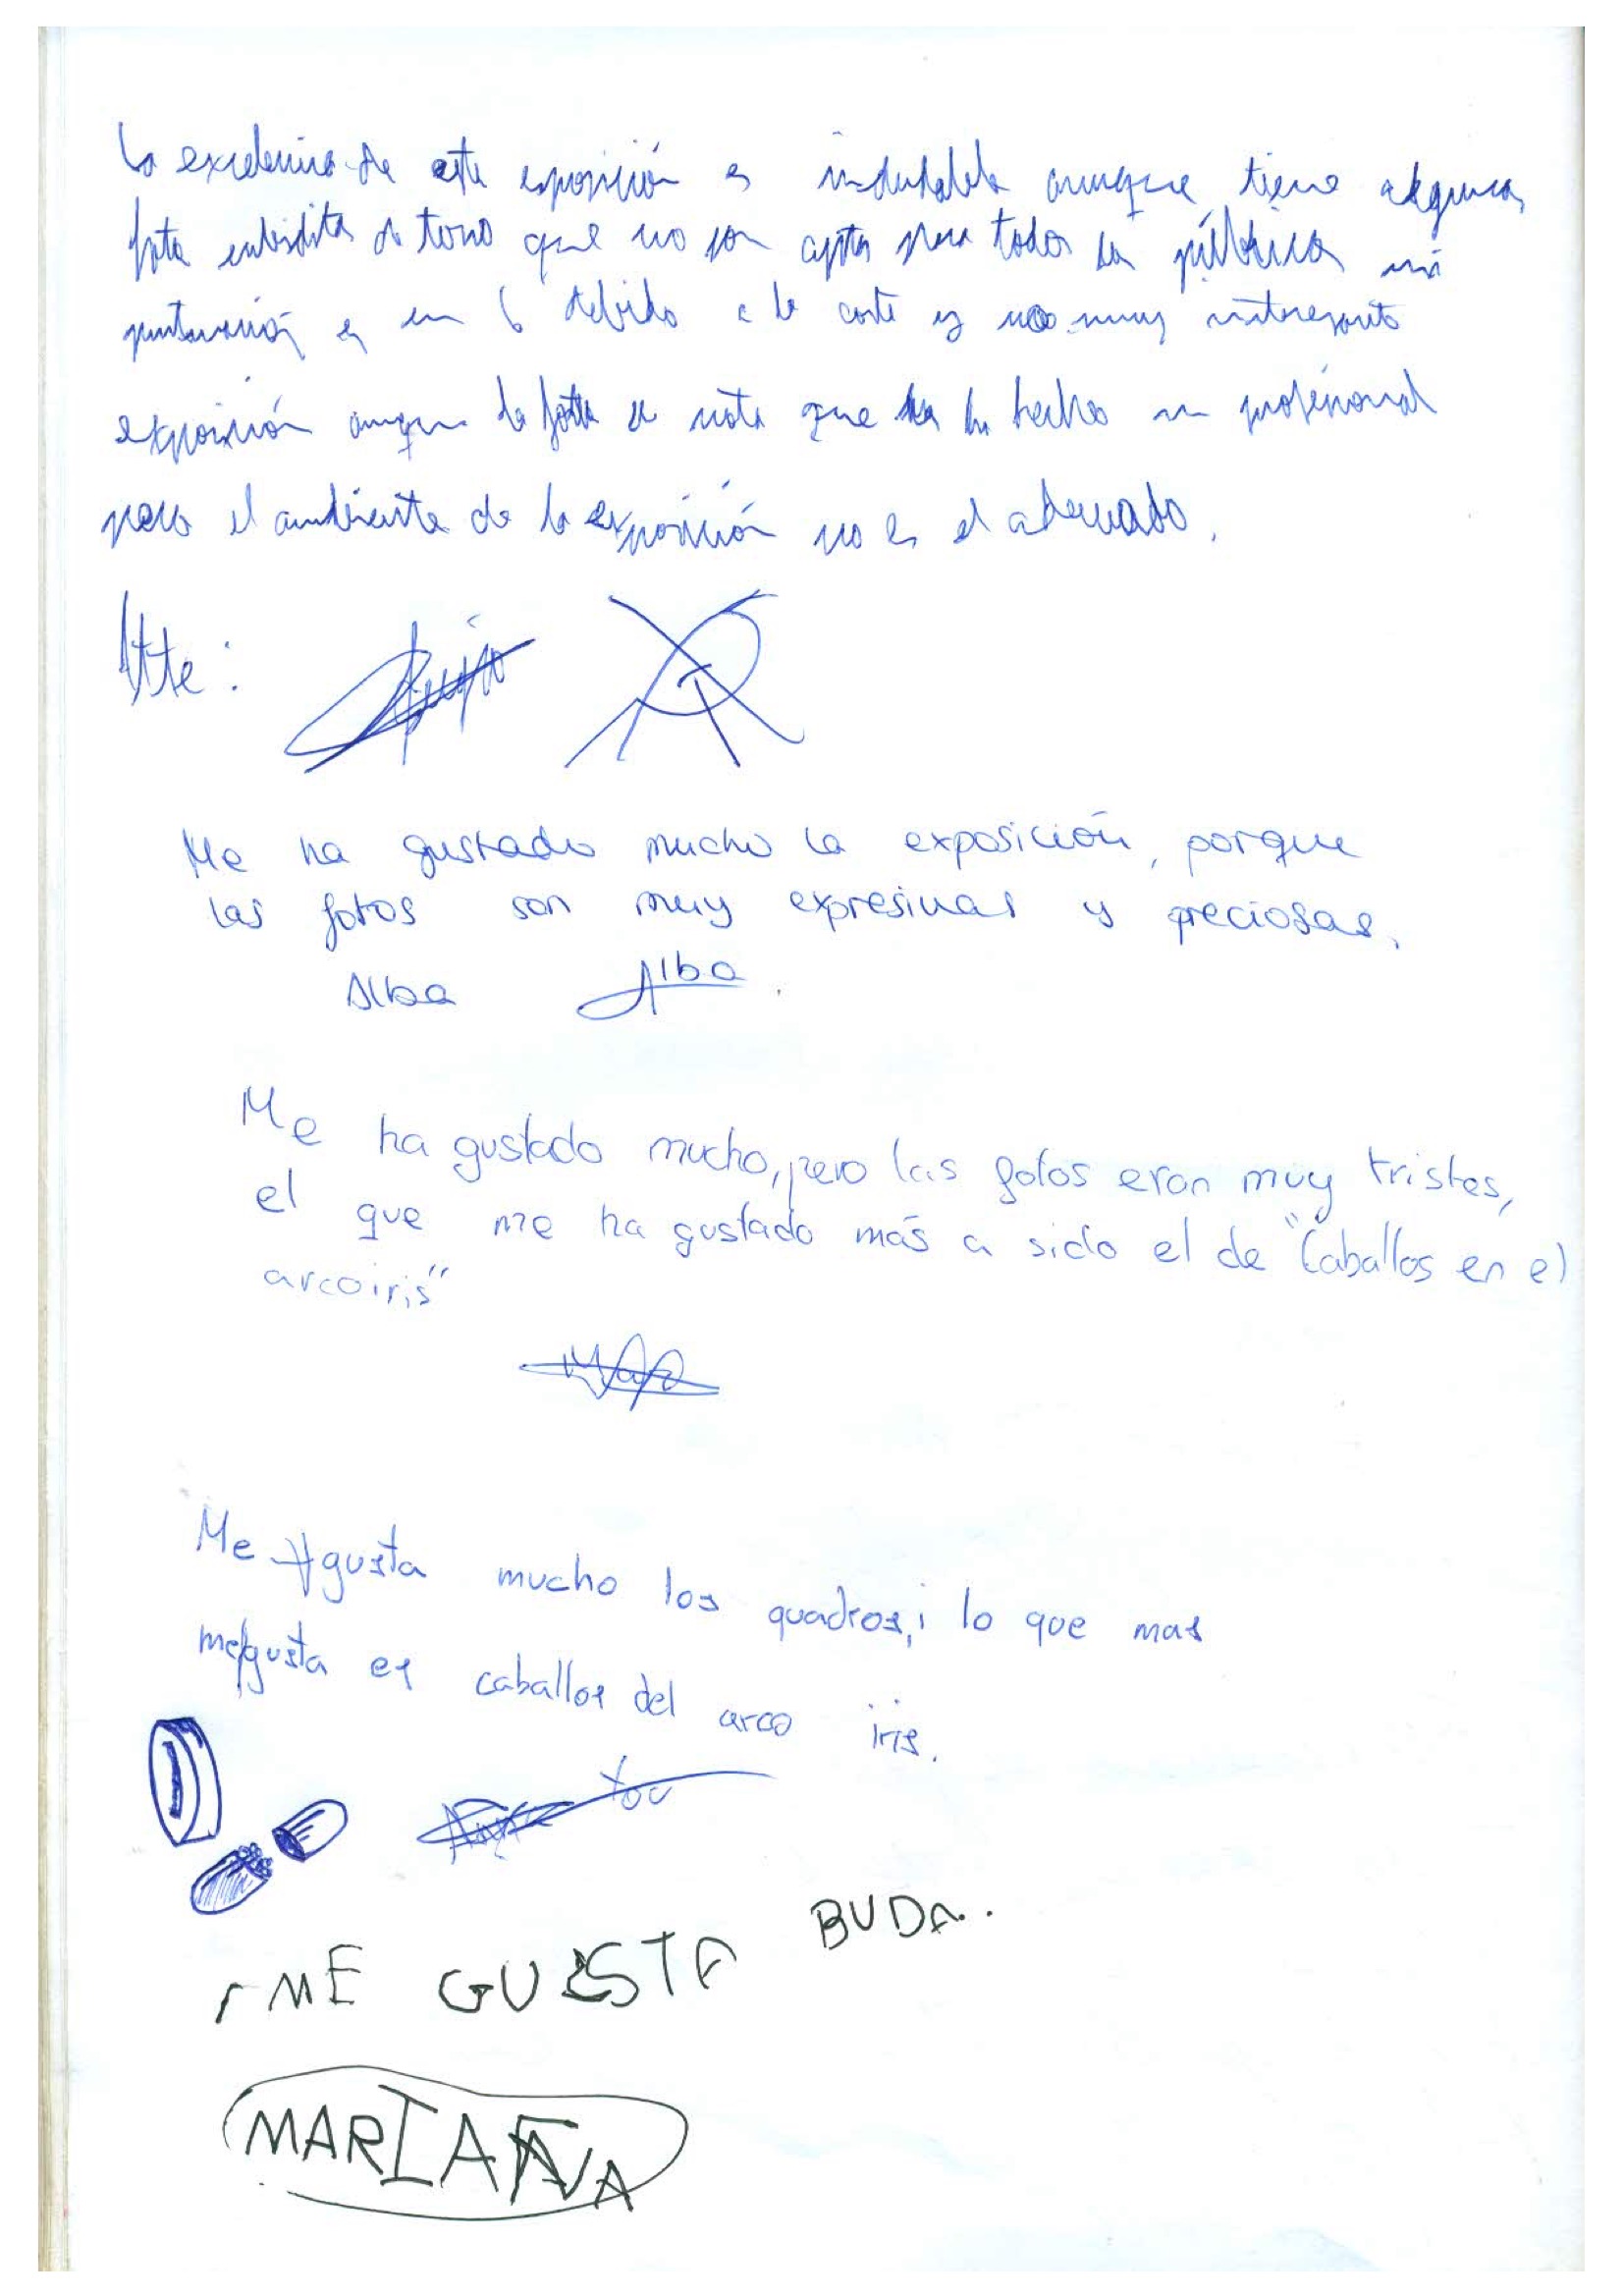 La excelencia de esta exposición es indudable aunque tiene algunas
fotos subiditas de tono que no son aptas para todos los públicos mi
puntuación es un 6 debido a la corta y no muy interesante
exposición aunque la foto se nota que las ha hecho un profesional
pero el ambiente de la exposición no es el adecuado.
Atte:
Me ha gustado mucho la exposición, porque
las fotos son muy expresivas y preciosas.
Alba Alba
Me ha gustado mucho, pero las fotos eran muy tristes,
el que me ha gustado más a sido el de "Caballos en el
arcoiris"
Me gusta mucho los quadros, i lo que mas
me gusta es caballos del arco iris.
ME GUSTA BUDA..
MARIANA